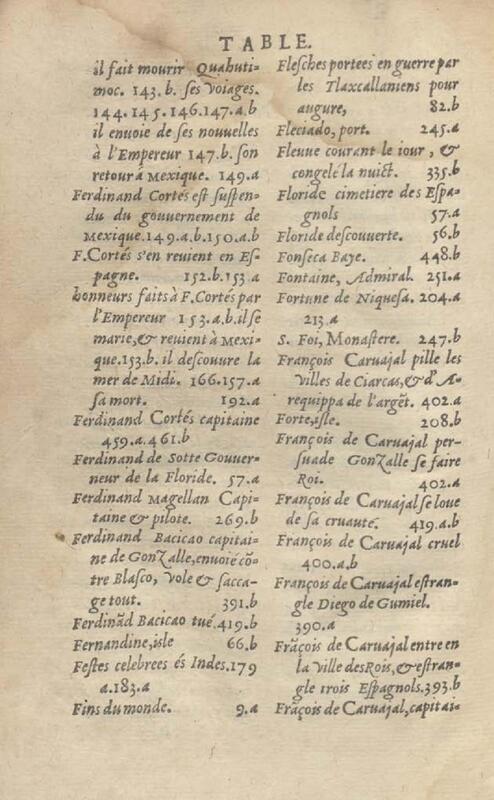 TABLE.
il fait mourir Quahuti-
moc. 143. b. ses voiages.
144. 145. 146. 147. a. b
il envoie de ses nouvelles
à l'Empereur 147. b. son
retour à Mexique. 149. a
Ferdinand Cortés est suspen-
du du gouvernement de
Mexique. 149. a. b. 150. a. b
F. Cortés s'en revient en Es-
pagne. 152. b. 153. a
honneurs faits à F. Cortés par
l'Empereur 153. a. b. il se
marie, & revient à Mexi-
que. 153. b. il descouvre la
mer de Midi. 166. 157. a
sa mort. 192. a
Ferdinand Cortés capitaine
459. a. 461. b
Ferdinand de Sotte Gouver-
neur de la Floride. 57. a
Ferdinand Magellan Capi-
taine & pilote. 269. b
Ferdinand Bacicao capitai-
ne de Gonzalle, envoié cō-
tre Blasco, vole & sacca-
ge tout. 391. b
Ferdinād Bacicao tué. 419. b
Fernandine, isle 66. b
Festes celebrees és Indes. 179
a. 183. a
Fins du monde. 9. a
Flesches portees en guerre par
les Tlaxcallaniens pour
augure, 82. b
Fleciado, port. 245. a
Fleuue courant le iour, &
congelé la nuict. 335. b
Floride cimetiere des Espa-
gnols 57. a
Floride descouverte. 56. b
Fonseca Baye. 448. b
Fontaine, Admiral. 251. a
Fortune de Niquesa. 204. a
213. a
S. Foi, Monastere. 247. b
François Caruajal pille les
villes de Ciarcas, & d'A-
requippa de l'argēt. 402. a
Forte, isle. 208. b
François de Caruajal per-
suade Gonzalle se faire
Roi. 402. a
François de Caruajal se loue
de sa cruauté. 419. a. b
François de Caruajal cruel
400. a. b
François de Caruajal estran-
gle Diego de Gumiel.
390. a
Frāçois de Caruajal entre en
la ville des Rois, & estran-
gle trois Espagnols. 393. b
Frāçois de Caruajal, capitai-